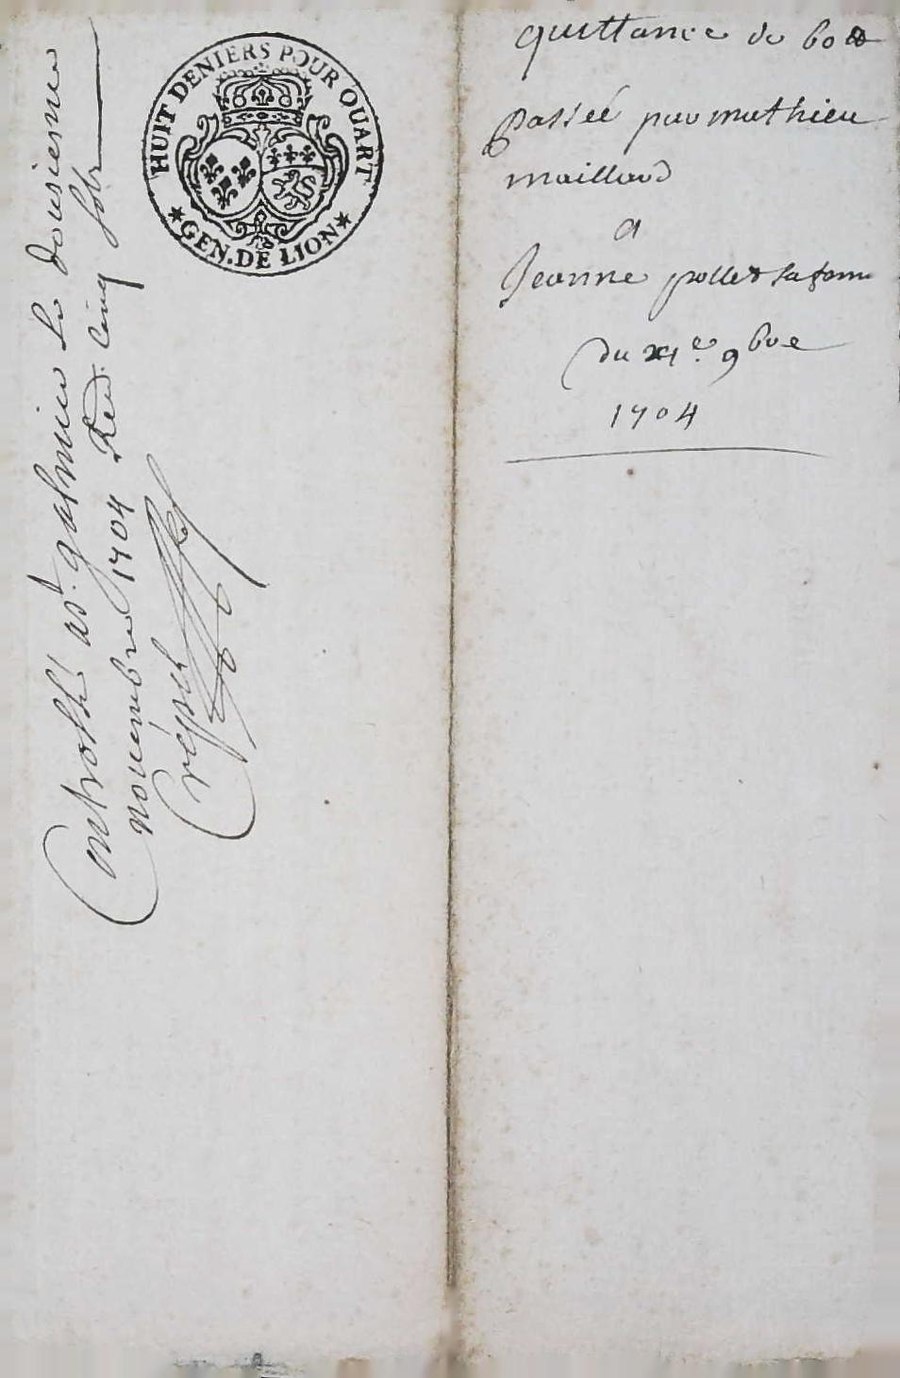 HUIT DENIERS POUR QUART
GEN. DE LION
Controllé a st. galmier le dousieme
nouembre 1704 Red. cinq sols
Crespet
quittance de 60 ₶
passée par mathieu
maillard
a
Jeanne pollet sa fem
du xie. 9bre
1704